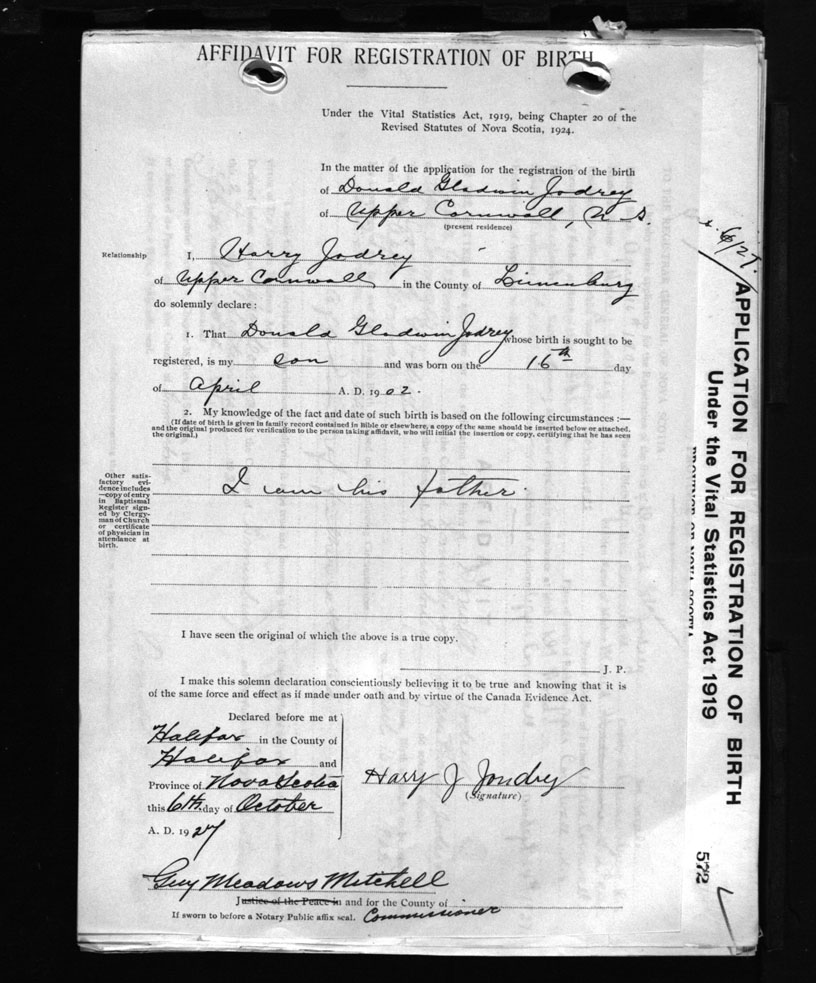 AFFIDAVIT FOR REGISTRATION OF BIRTH
Under the Vital Statistics Act, 1919, being Chapter 20 of the
Revised Statutes of Nova Scotia, 1924.
In the matter of the application for the registration of the birth
of Donald Gladwin Jodrey
of Upper Cornwall, N. S.
(present residence)
Relationship
I, Harry Jodrey
of Upper Cornwall in the County of Lunenburg
do solemnly declare :
1. That Donald Gladwin Jodrey whose birth is sought to be
registered, is my son and was born on the 16th day
of April A. D. 1902.
2. My knowledge of the fact and date of such birth is based on the following circumstances :—
(If date of birth is given in family record contained in Bible or elsewhere, a copy of the same should be inserted below or attached,
and the original produced for verification to the person taking affidavit, who will initial the insertion or copy, certifying that he has seen
the original.)
Other satis-
factory evi-
dence includes
—copy of entry
in Baptismal
Register sign-
ed by Clergy-
man of Church
or certificate
of physician in
attendance at
birth.
I am his father.
I have seen the original of which the above is a true copy.
J. P.
I make this solemn declaration conscientiously believing it to be true and knowing that it is
of the same force and effect as if made under oath and by virtue of the Canada Evidence Act.
Declared before me at
Halifax in the County of
Halifax and
Province of Nova Scotia
this 6th day of October
A. D. 1927
Harry J Joudrey
(Signature)
Guy Meadows Mitchell
Justice of the Peace in and for the County of
If sworn to before a Notary Public affix seal. Commissioner
APPLICATION FOR REGISTRATION OF BIRTH
Under the Vital Statistics Act 1919
PROVINCE OF NOVA SCOTIA
572